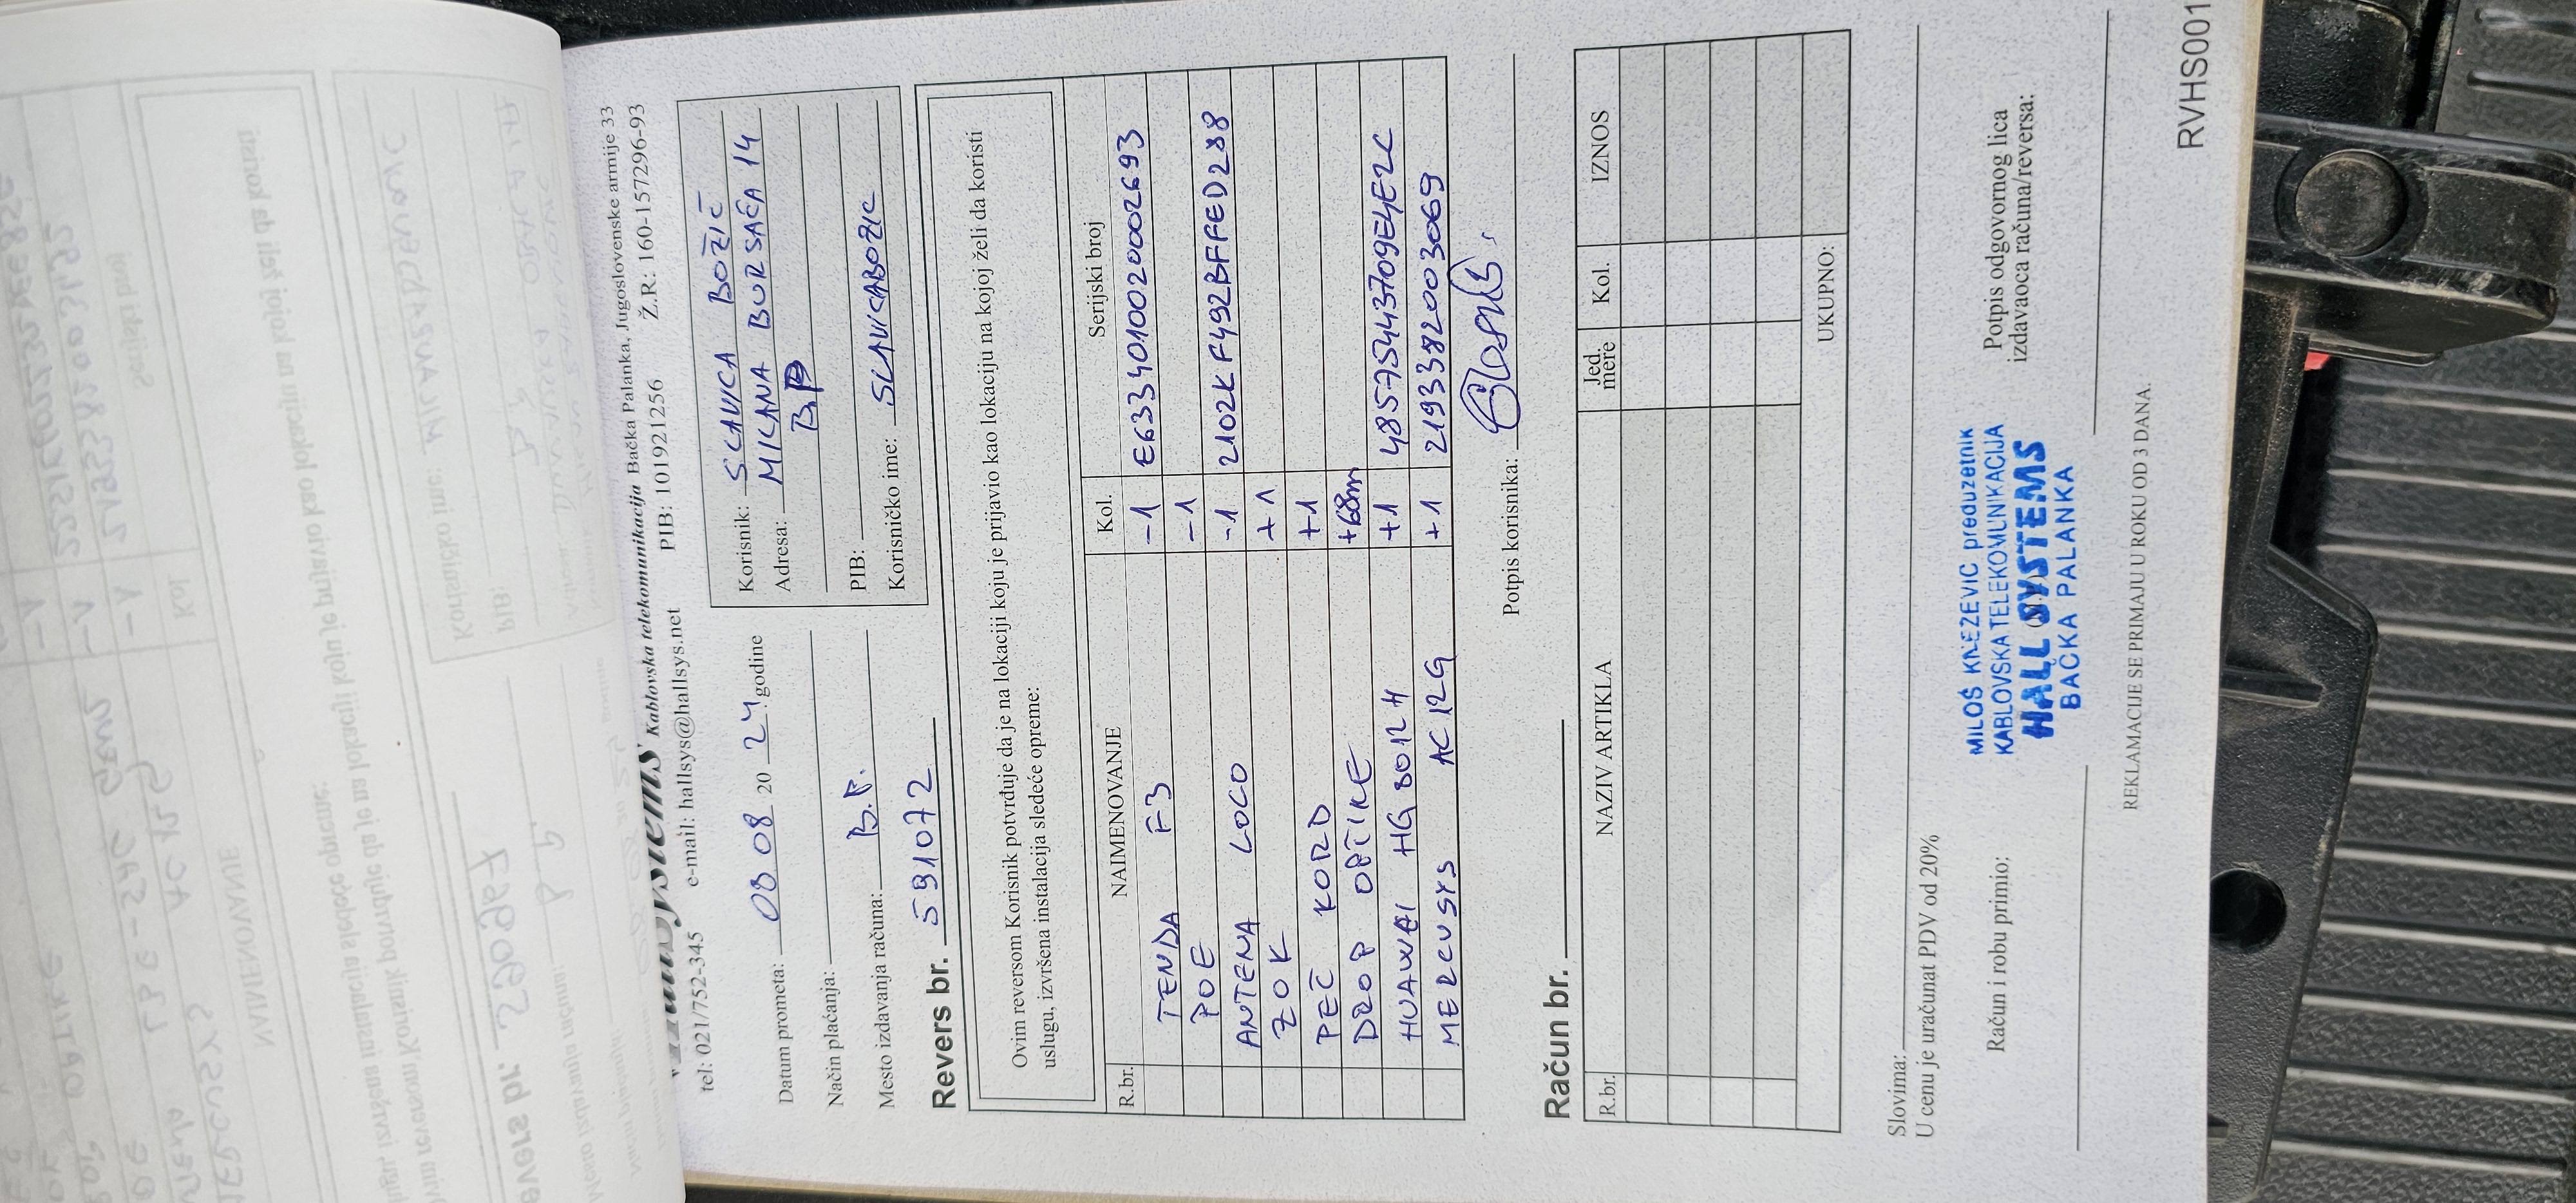 Hallsystems Kablovska telekomunikacija Bačka Palanka, Jugoslovenske armije 33
tel: 021/752-345 e-mail: hallsys@hallsys.net PIB: 101921256 Ž.R: 160-157296-93
Datum prometa: 08 08 20 24 godine
Način plaćanja:
Mesto izdavanja računa: B.P.
Korisnik: SLAVICA BOŽIĆ
Adresa: MILANA BURSAĆA 14
B.P
PIB:
Korisničko ime: SLAVICABOZIC
Revers br. 591072
Ovim reversom Korisnik potvrđuje da je na lokaciji koju je prijavio kao lokaciju na kojoj želi da koristi
uslugu, izvršena instalacija sledeće opreme:
R.br. NAIMENOVANJE Kol. Serijski broj
TENDA F3 -1 E6334010020002693
POE -1
ANTENA LOCO -1 2102KF492BFFED288
ZOK +1
PEČ KORD +1
DROP OPTIKE +68m
HUAWEI HG8012H +1 48575443709E4E2C
MERCUSYS AC12G +1 2193382003069
Potpis korisnika:
Račun br.
R.br. NAZIV ARTIKLA Jed. mere Kol. IZNOS
UKUPNO:
Slovima:
U cenu je uračunat PDV od 20%
Račun i robu primio:
MILOŠ KNEŽEVIĆ preduzetnik
KABLOVSKA TELEKOMUNIKACIJA
HALL SYSTEMS
BAČKA PALANKA
Potpis odgovornog lica
izdavaoca računa/reversa:
REKLAMACIJE SE PRIMAJU U ROKU OD 3 DANA.
RVHS001